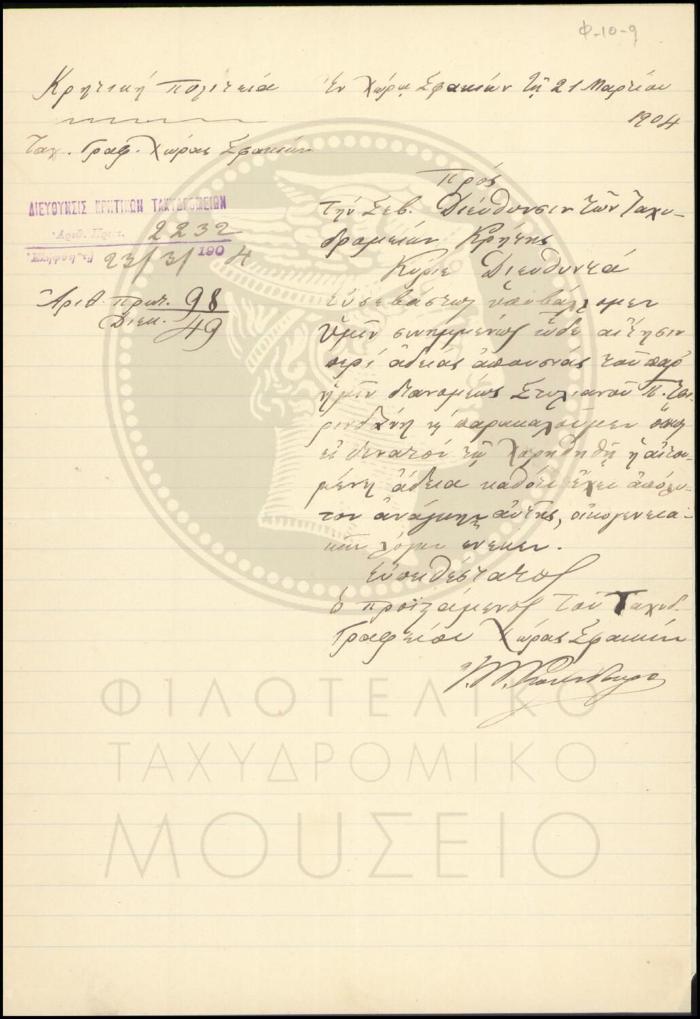 Φ-10-9
Κρητική Πολιτεία
Ταχ. Γραφ. Χώρας Σφακίων
ΔΙΕΥΘΥΝΣΙΣ ΚΡΗΤΙΚΩΝ ΤΑΧΥΔΡΟΜΕΙΩΝ
Ἀριθ. Πρωτ. 2232
23/3/1904
Ἀριθ. πρωτ. 98
Διεκ. 49
Ἐν Χώρᾳ Σφακίων τῇ 21 Μαρτίου
1904
Πρός
τὴν Σεβ. Διεύθυνσιν τῶν Ταχυ-
δρομείων Κρήτης
Κύριε Διευθυντά
Εὐσεβάστως ὑποβάλλομεν
ὑμῖν συνημμένως ὧδε αἴτησιν
περί ἀδείας ἀπουσίας τοῦ παρ'
ἡμῖν διανομέως Στυλιανοῦ
παρακαλοῦμεν ὅπως
εἰ δυνατόν τῷ χορηγηθῇ ἡ αἰτου-
μένη ἄδεια καθότι ἔχει ἀπόλυ-
τον ἀνάγκην αὐτῆς, οἰκογενεια-
κῶν λόγων ἕνεκεν.
Εὐπειθέστατος
ὁ προϊστάμενος τοῦ Ταχυδ.
Γραφείου Χώρας Σφακίων
ΦΙΛΟΤΕΛΙΚΟ
ΤΑΧΥΔΡΟΜΙΚΟ
ΜΟΥΣΕΙΟ